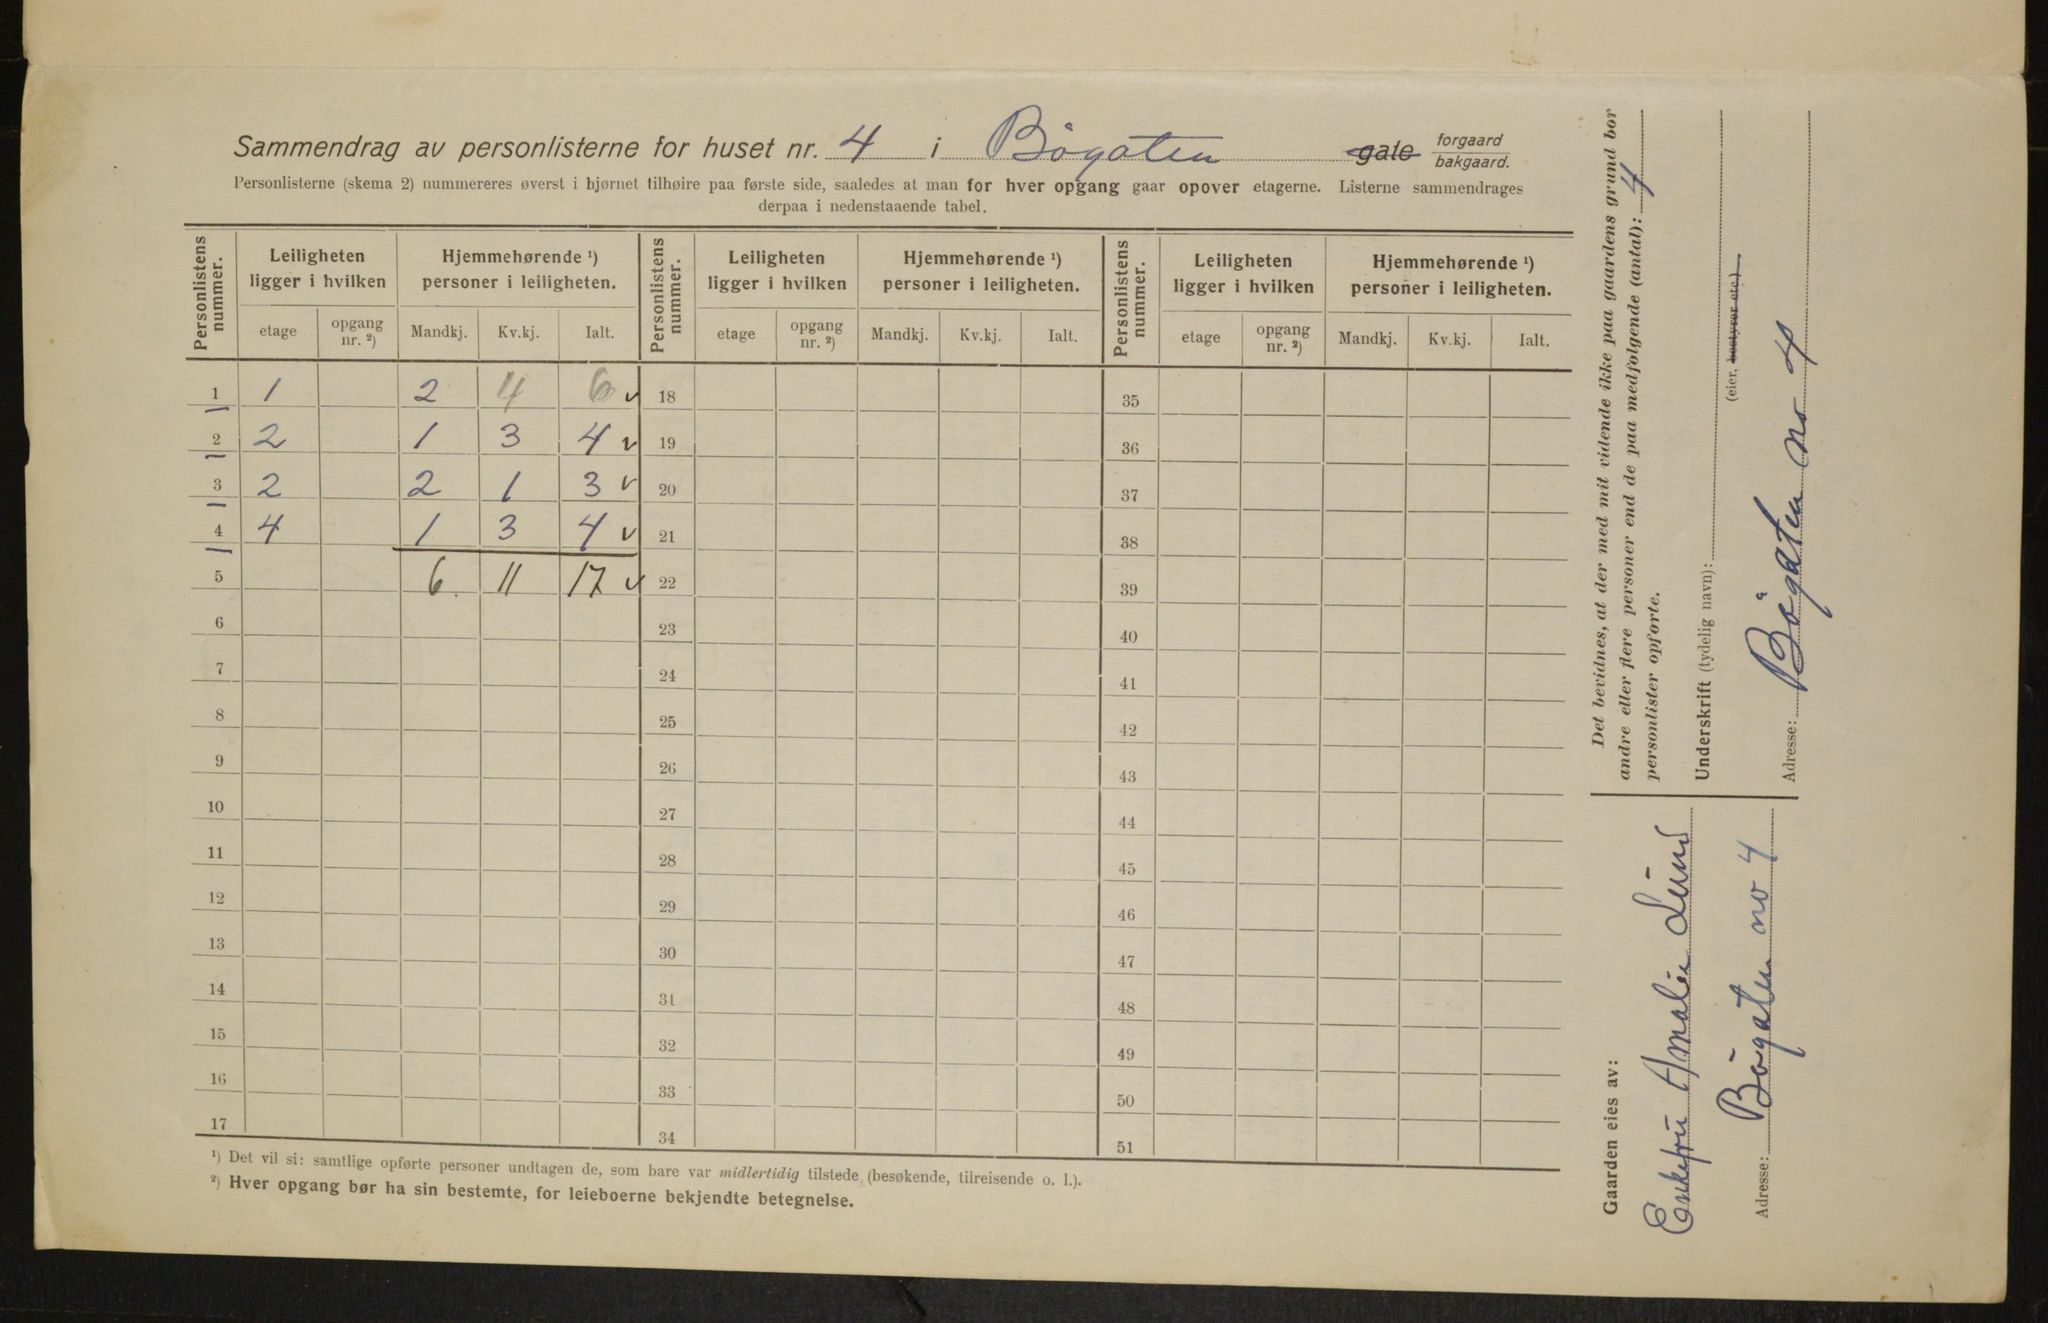 Sammendrag av personlisterne for huset nr. 4 i Bögaten gate forgaard bakgaard.
Personlisterne (skema 2) nummereres øverst i hjørnet tilhøire paa første side, saaledes at man for hver opgang gaar opover etagerne. Listerne sammendrages
derpaa i nedenstaaende tabel.
Personlistens nummer. Leiligheten ligger i hvilken Hjemmehørende ¹) personer i leiligheten. Personlistens nummer. Leiligheten ligger i hvilken Hjemmehørende ¹) personer i leiligheten. Personlistens nummer. Leiligheten ligger i hvilken Hjemmehørende ¹) personer i leiligheten.
etage opgang nr. ²) Mandkj. Kv.kj. Ialt. etage opgang nr. ²) Mandkj. Kv.kj. Ialt. etage opgang nr. ²) Mandkj. Kv.kj. Ialt.
1 1 2 4 6 v 18 35
2 2 1 3 4 v 19 36
3 2 2 1 3 v 20 37
4 4 1 3 4 v 21 38
5 6. 11 17 v 22 39
6 23 40
7 24 41
8 25 42
9 26 43
10 27 44
11 28 45
12 29 46
13 30 47
14 31 48
15 32 49
16 33 50
17 34 51
¹) Det vil si: samtlige opførte personer undtagen de, som bare var midlertidig tilstede (besøkende, tilreisende o. l.).
²) Hver opgang bør ha sin bestemte, for leieboerne bekjendte betegnelse.
Det bevidnes, at der med mit vidende ikke paa gaardens grund bor
andre eller flere personer end de paa medfølgende (antal): 4
personlister opførte.
Underskrift (tydelig navn):
(eier, bestyrer etc.)
Adresse: Bögaten no 4
Gaarden eies av:
Enkefru Amalie Lund
Adresse: Bögaten no 4